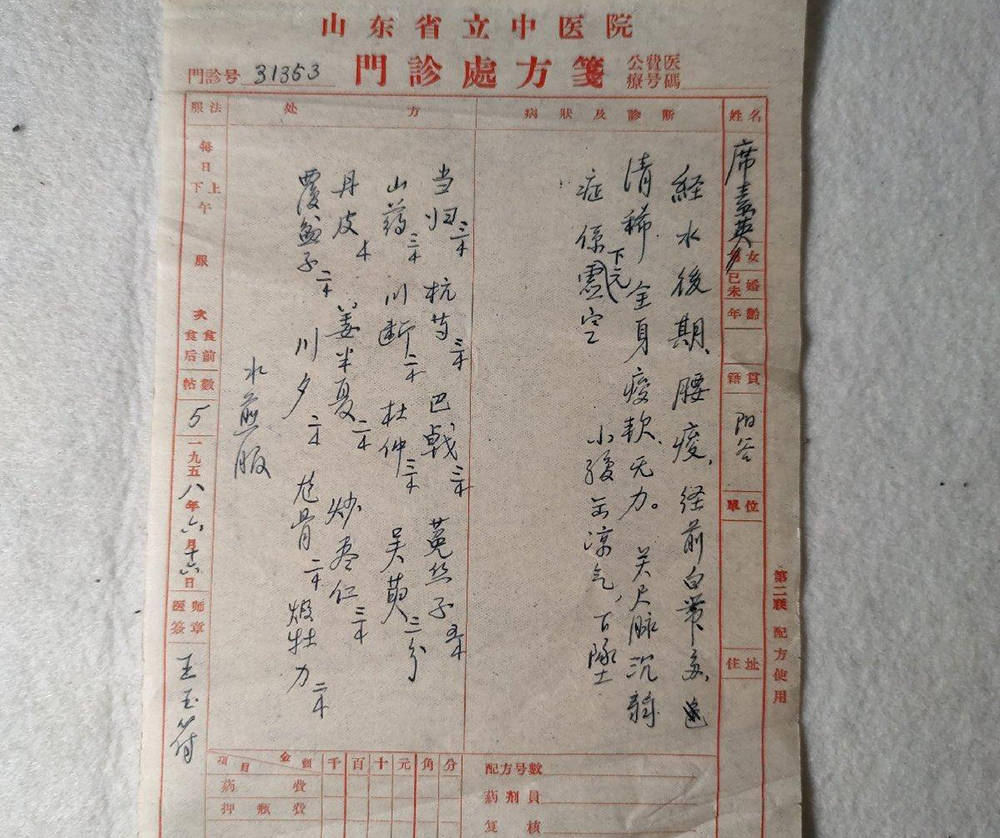 山东省立中医院
門診處方箋
公費医療号碼
門診号 31353
姓名 席素英
男女
已未婚
年齡
籍貫 阳谷
單位
住址
病狀及診斷
経水後期、腰痠、经前白带多、
清稀 全身痠软无力。关尺脉沉弱
症係下元虛寒 小腹至凉气,下墜
处方
当归三本 杭芍三本 巴戟三本 菟丝子五本
山药三本 川断二本 杜仲三本 吴萸二分
丹皮本 姜半夏二本 炒枣仁三本
覆盆子二本 川夕二本 龙骨二本 煅牡力二本
水煎服
服法
每日上下午服 次
食前食后
帖數 5
一九五八年六月十六日
医師签章 王玉符
第二联 配方使用
項目 金額 千 百 十 元 角 分
药費
押瓶費
配方号數
药剂員
复核